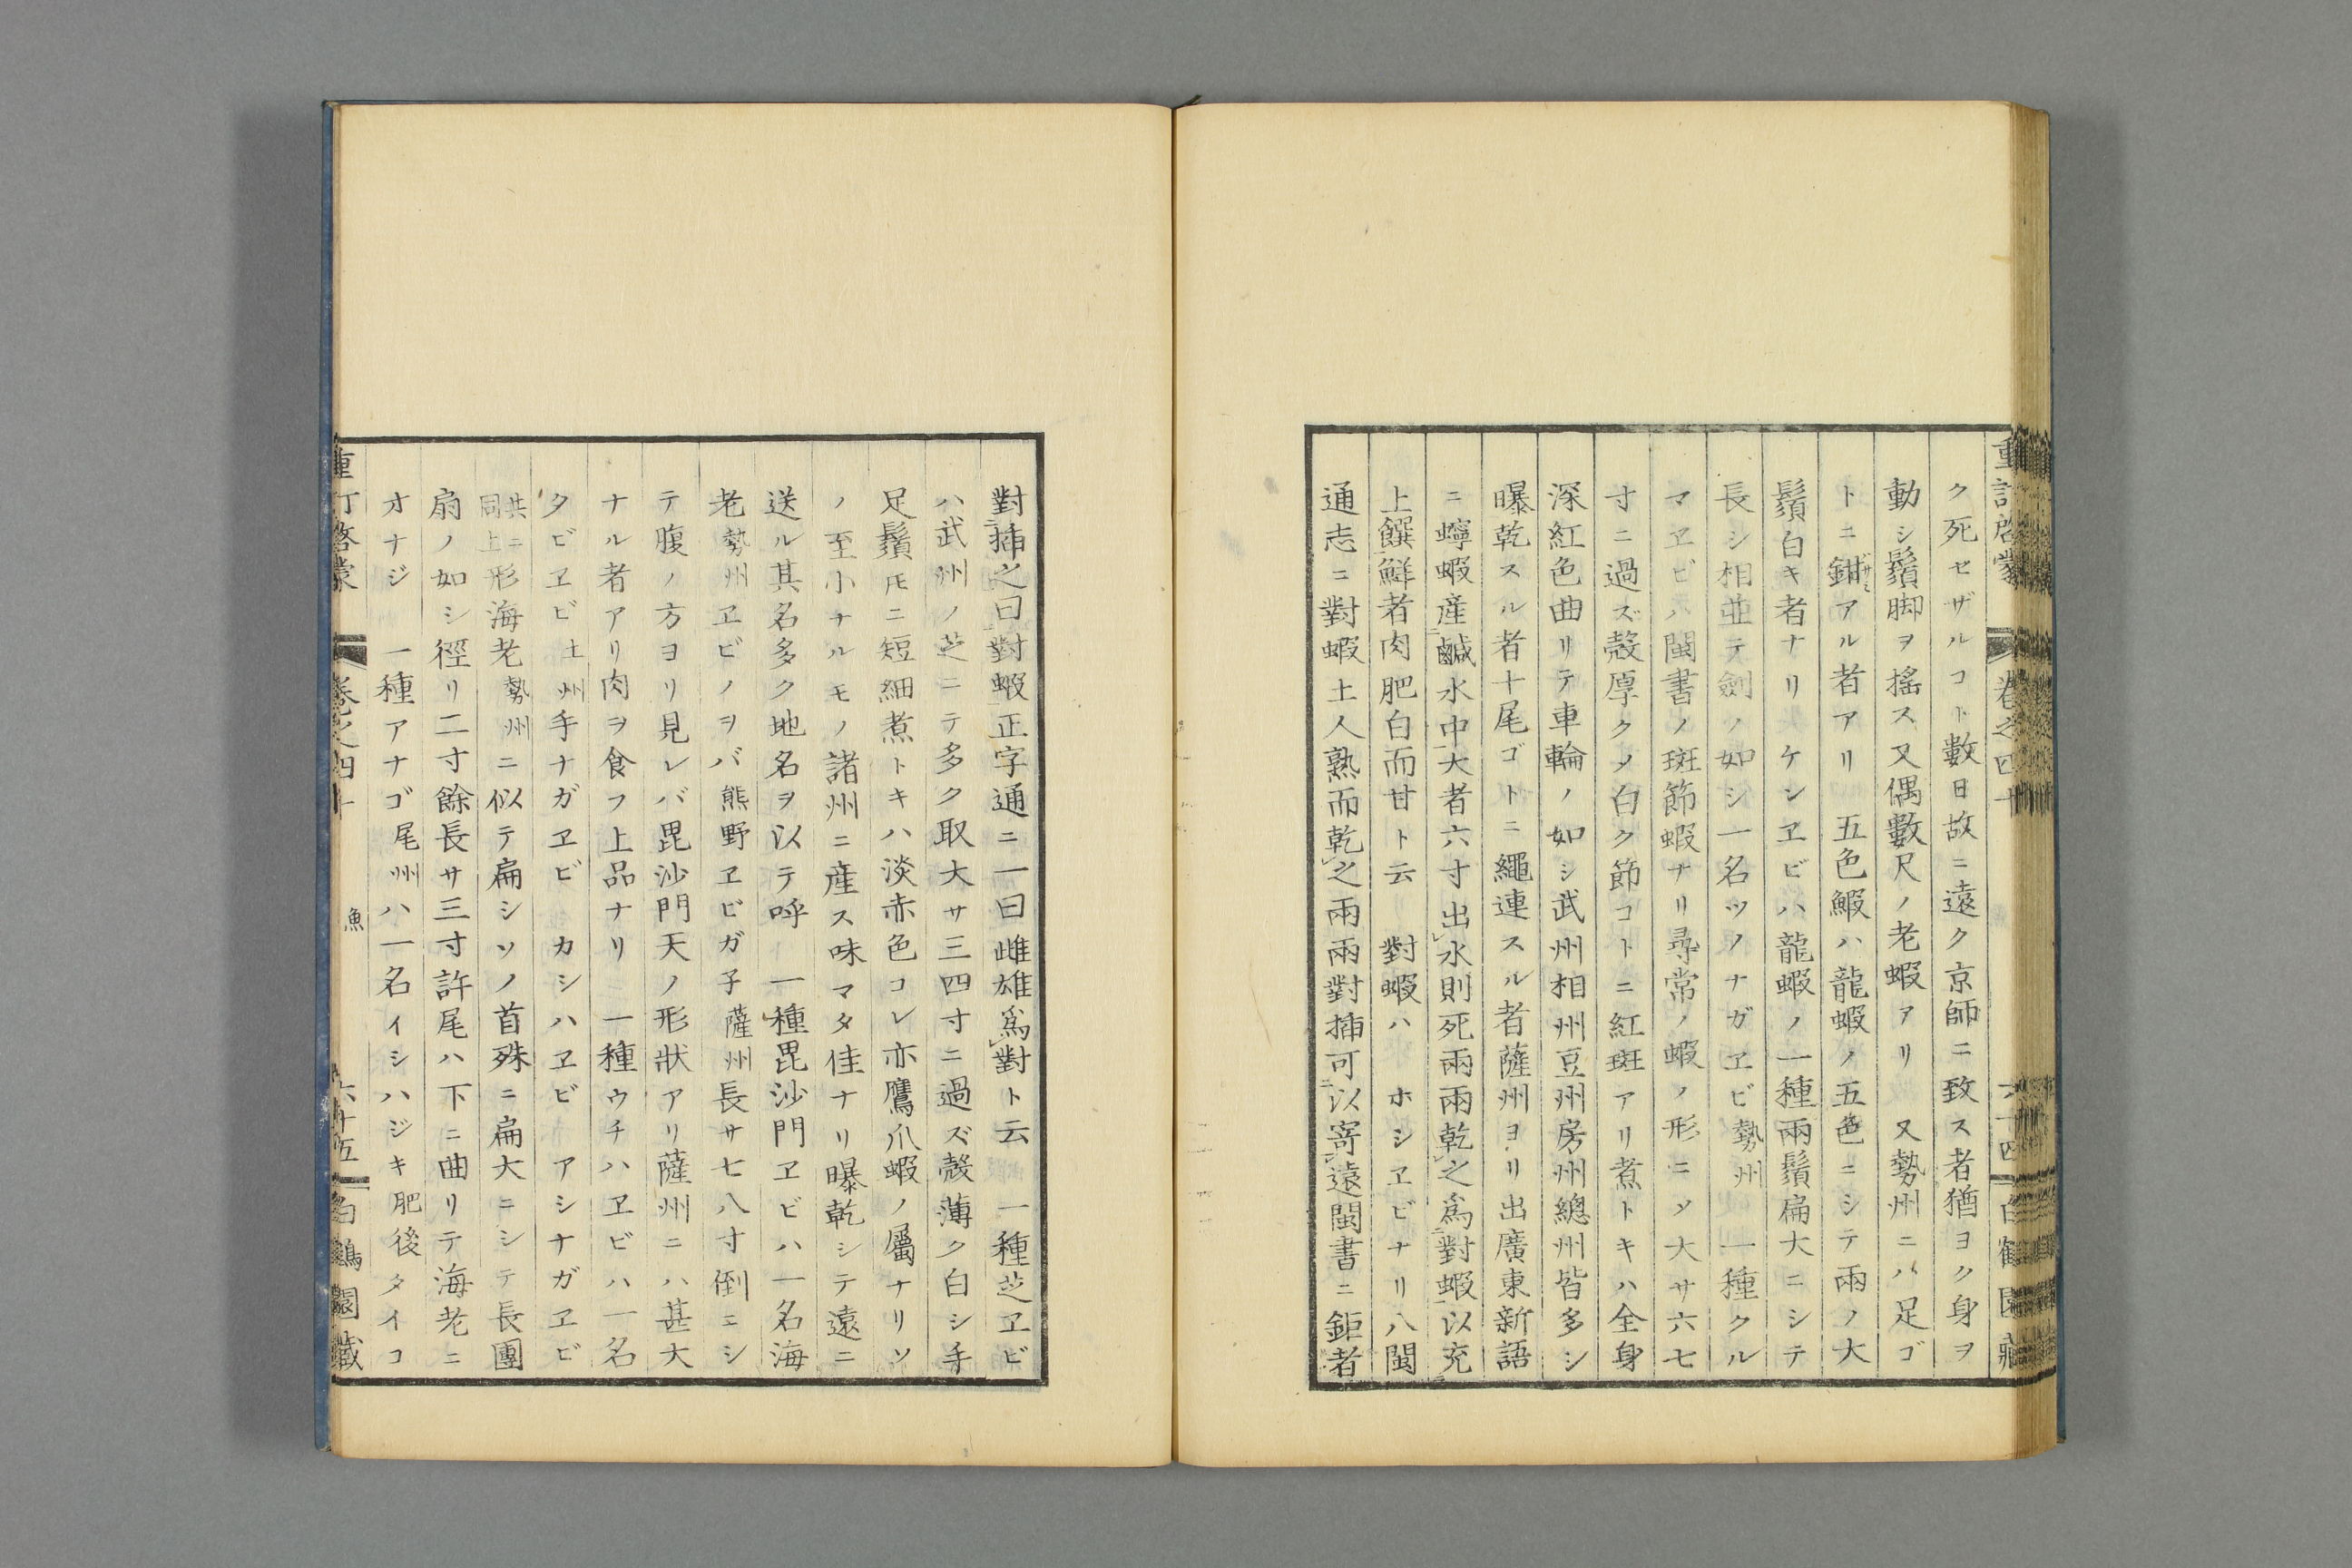 ク死セザルコト數日故ニ遠ク京師ニ致ス者猶ヨク身ヲ
動シ鬚脚ヲ搖ス又偶數尺ノ老蝦アリ　又勢州ニハ足ゴ
トニ鉗アル者アリ　五色鰕ハ龍蝦ノ五色ニシテ兩ノ大
鬚白キ者ナリ　ケンヱビハ龍蝦ノ一種兩鬚扁大ニシテ
長シ相並テ劍ノ如シ一名ツノナガヱビ勢州　一種クル
マヱビハ閩書ノ斑節蝦ナリ尋常ノ蝦ノ形ニノ大サ六七
寸ニ過ズ殼厚クノ白ク節コトニ紅斑アリ煮トキハ全身
深紅色曲リテ車輪ノ如シ武州相州豆州房州總州皆多シ
曝乾スル者十尾ゴトニ繩連スル者薩州ヨリ出廣東新語
ニ蠕蝦産鹹水中大者六寸出水則死兩兩乾之爲對蝦以充
上饌鮮者肉肥白而甘ト云　對蝦ハ　ホシヱビナリ八閩
通志ニ對蝦土人熟而乾之兩兩對揷可以寄遠閩書ニ鉅者
對揷之曰對蝦正字通ニ一曰雌雄爲對ト云　一種芝ヱビ
ハ武州ノ芝ニテ多ク取大サ三四寸ニ過ズ殼薄ク白シ手
足鬚𪜈ニ短細煮トキハ淡赤色コレ亦鷹爪蝦ノ屬ナリソ
ノ至小ナルモノ諸州ニ産ス味マタ佳ナリ曝乾シテ遠ニ
送ル其名多ク地名ヲ以テ呼　一種毘沙門ヱビハ一名海
老勢州ヱビノヲバ熊野ヱビガ子薩州長サ七八寸倒ニシ
テ腹ノ方ヨリ見レバ毘沙門天ノ形狀アリ薩州ニハ甚大
ナル者アリ肉ヲ食フ上品ナリ　一種ウチハヱビハ一名
タビヱビ土州手ナガヱビ　カシハヱビ　アシナガヱビ
共ニ同上形海老勢州ニ似テ扁シソノ首殊ニ扁大ニシテ長團
扇ノ如シ徑リ二寸餘長サ三寸許尾ハ下ニ曲リテ海老ニ
オナジ　一種アナゴ尾州ハ一名イシハジキ肥後タイコ
重訂啓蒙　卷之四十　魚　六十五　白鶴園藏